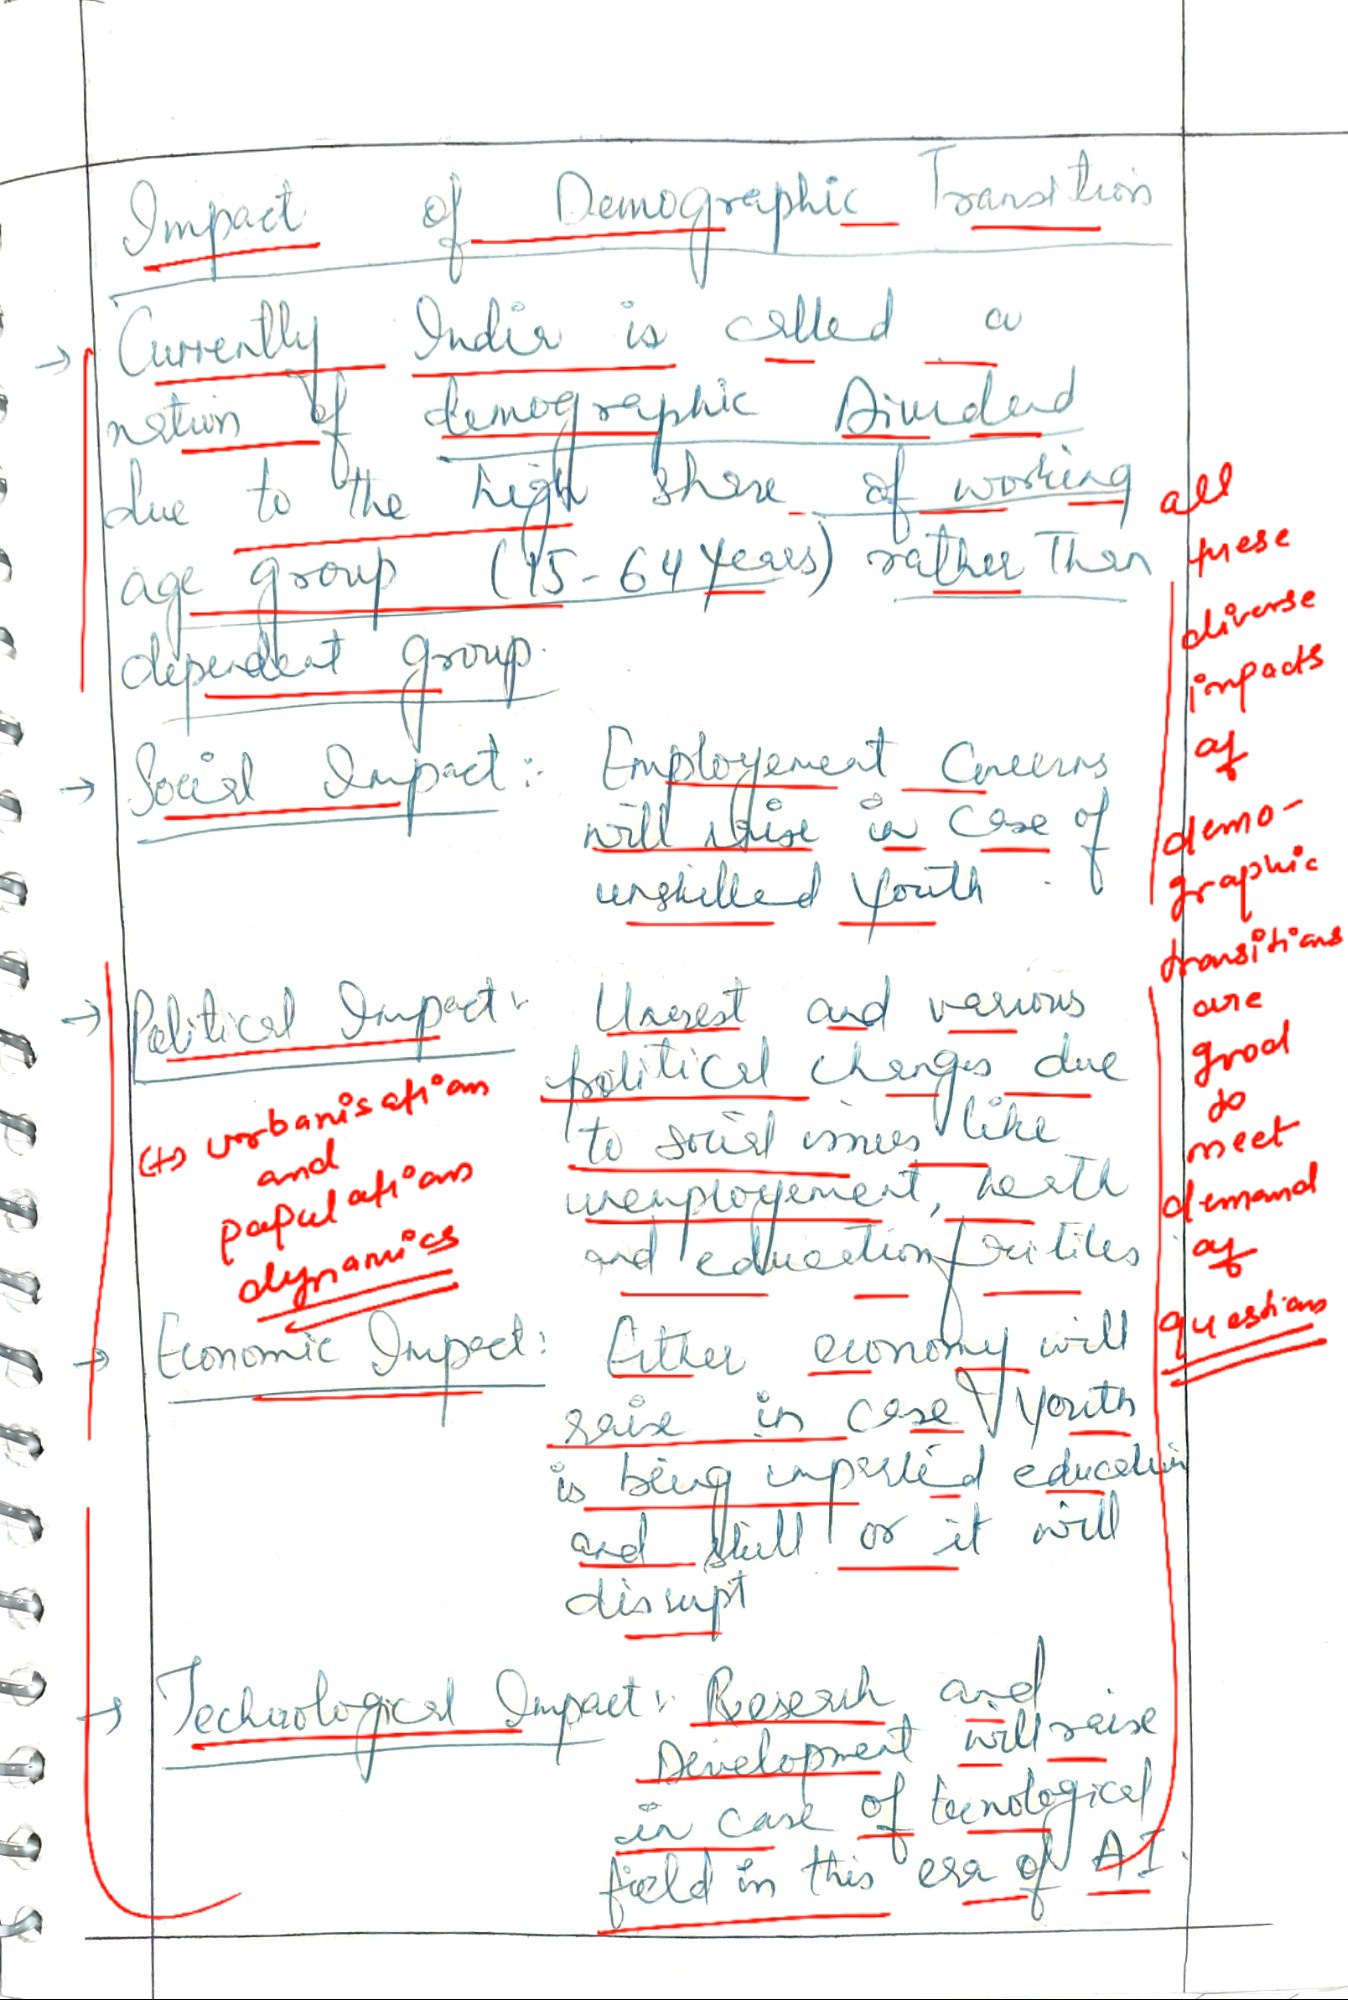 Impact of Demographic Transition
→ Currently India is called a
nation of demographic Dividend
due to the high share of working
age group (15-64 years) rather than
dependent group.
→ Social Impact:- Employement Concerns
will raise in case of
unskilled youth.
→ Political Impact:- Unrest and various
political changes due
to social issues like
unemployement, health
and education facilities
(+) urbanisation
and
populations
dynamics
→ Economic Impact: Either economy will
raise in case youth
is being imparted education
and skill or it will
disrupt
→ Technological Impact:- Research and
Development will raise
in case of tecnological
field in this era of AI.
all
these
diverse
impacts
of
demo-
graphic
transitions
are
good
to
meet
demand
of
questions